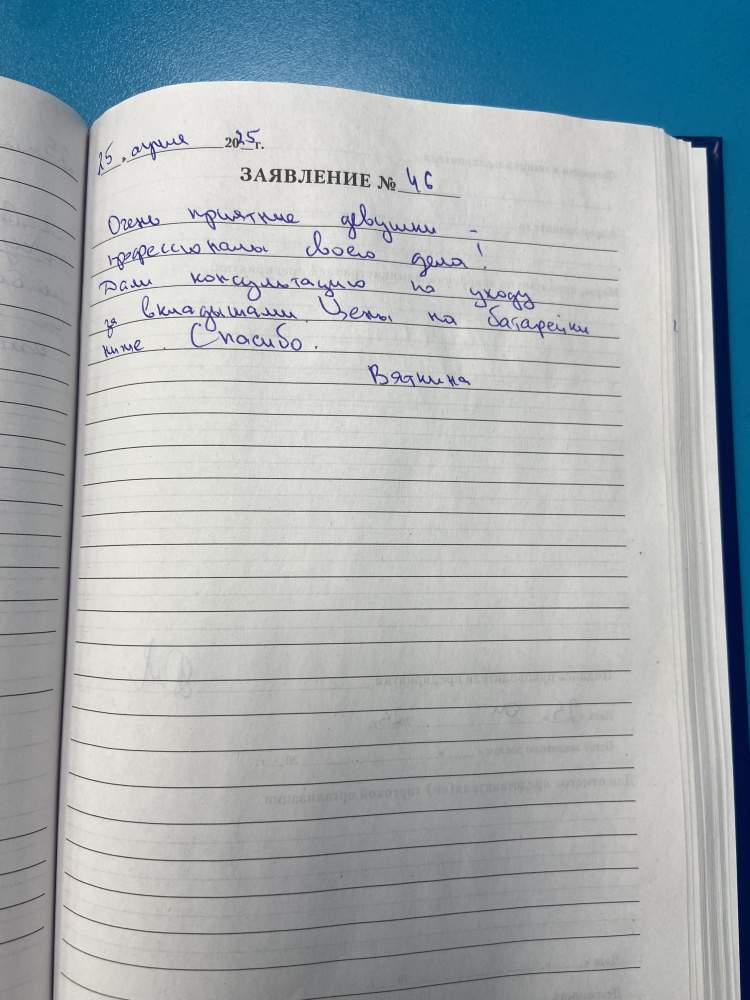 25 . апреля 2025 г.
ЗАЯВЛЕНИЕ № 46
Очень приятные девушки -
профессионалы своего дела!
Дали консультацию по уходу
за вкладышами. Цены на батарейки
ниже. Спасибо.
Вяткина